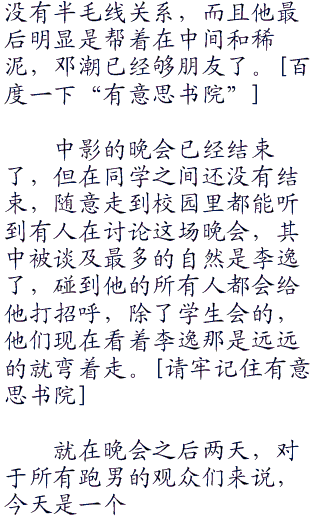 没有半毛线关系，而且他最
后明显是帮着在中间和稀
泥，邓潮已经够朋友了。[百
度一下“有意思书院”]
中影的晚会已经结束
了，但在同学之间还没有结
束，随意走到校园里都能听
到有人在讨论这场晚会，其
中被谈及最多的自然是李逸
了，碰到他的所有人都会给
他打招呼，除了学生会的，
他们现在看着李逸那是远远
的就弯着走。[请牢记住有意
思书院]
就在晚会之后两天，对
于所有跑男的观众们来说，
今天是一个